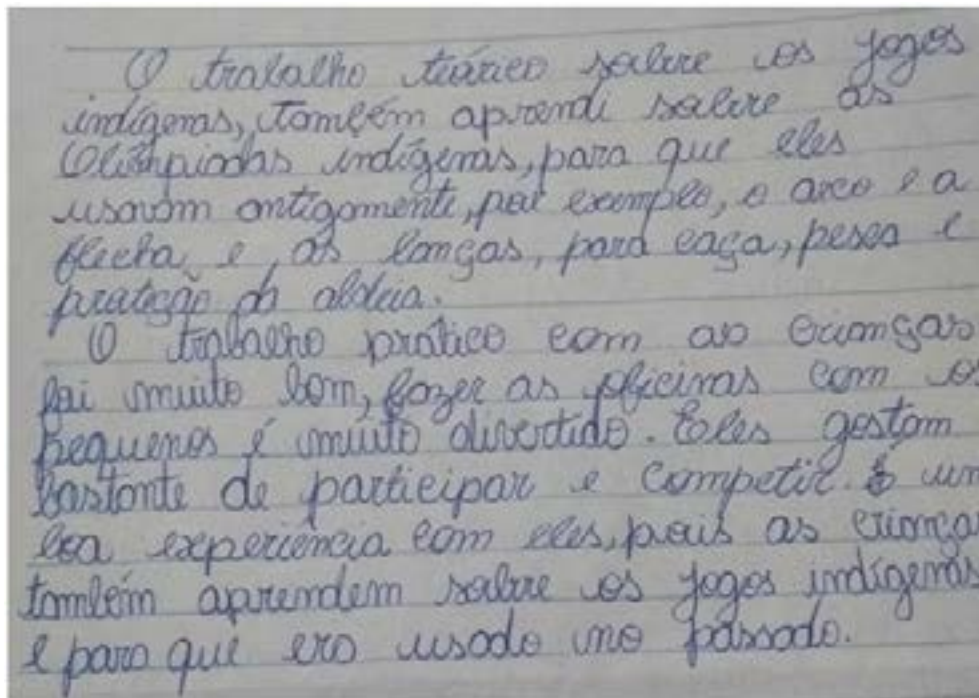 O trabalho teórico sobre os jogos
indígenas, também aprendi sobre as
Olimpiadas indígenas, para que eles
usavam antigamente, por exemplo, o arco e a
flecha, e, as lanças, para caça, pesca e
proteção da aldeia.
O trabalho prático com as crianças
foi muito bom, fazer as oficinas com os
pequenos é muito divertido. Eles gostam
bastante de participar e competir. É um
boa experiência com eles, pois as criança
também aprendem sobre os jogos indígenas
e para que era usado no passado.